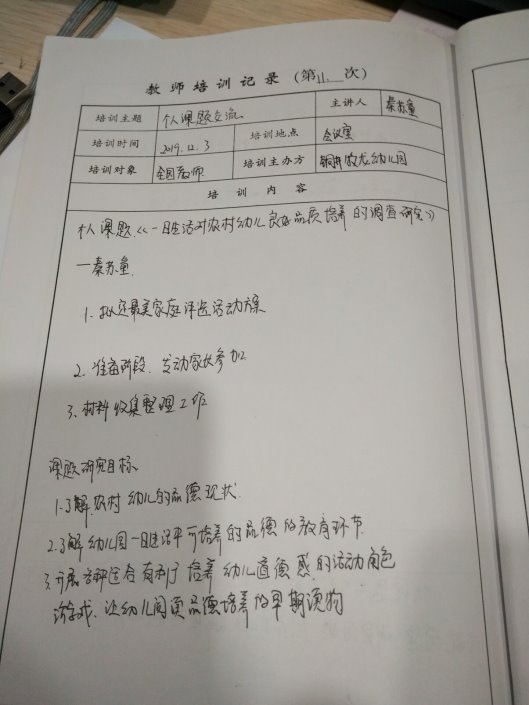 教师培训记录（第11次）
培训主题 个人课题交流 主讲人 秦苏童
培训时间 2019.12.3 培训地点 会议室
培训对象 全园教师 培训主办方 铜井牧龙幼儿园
培训内容
个人课题《一日生活对农村幼儿良好品质培养的调查研究》
—秦苏童
1. 拟定最美家庭评选活动方案
2. 准备阶段、发动家长参加
3. 材料收集整理工作
课题研究目标
1.了解农村幼儿的品德现状
2.了解幼儿园一日生活中可培养的品德的教育环节
3.开展各种适合有利于培养幼儿道德感的活动角色
游戏、让幼儿阅读品德培养的早期读物